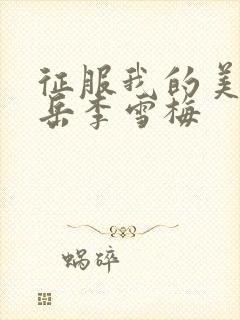 征服我的美
岳李雪梅
蜗碎